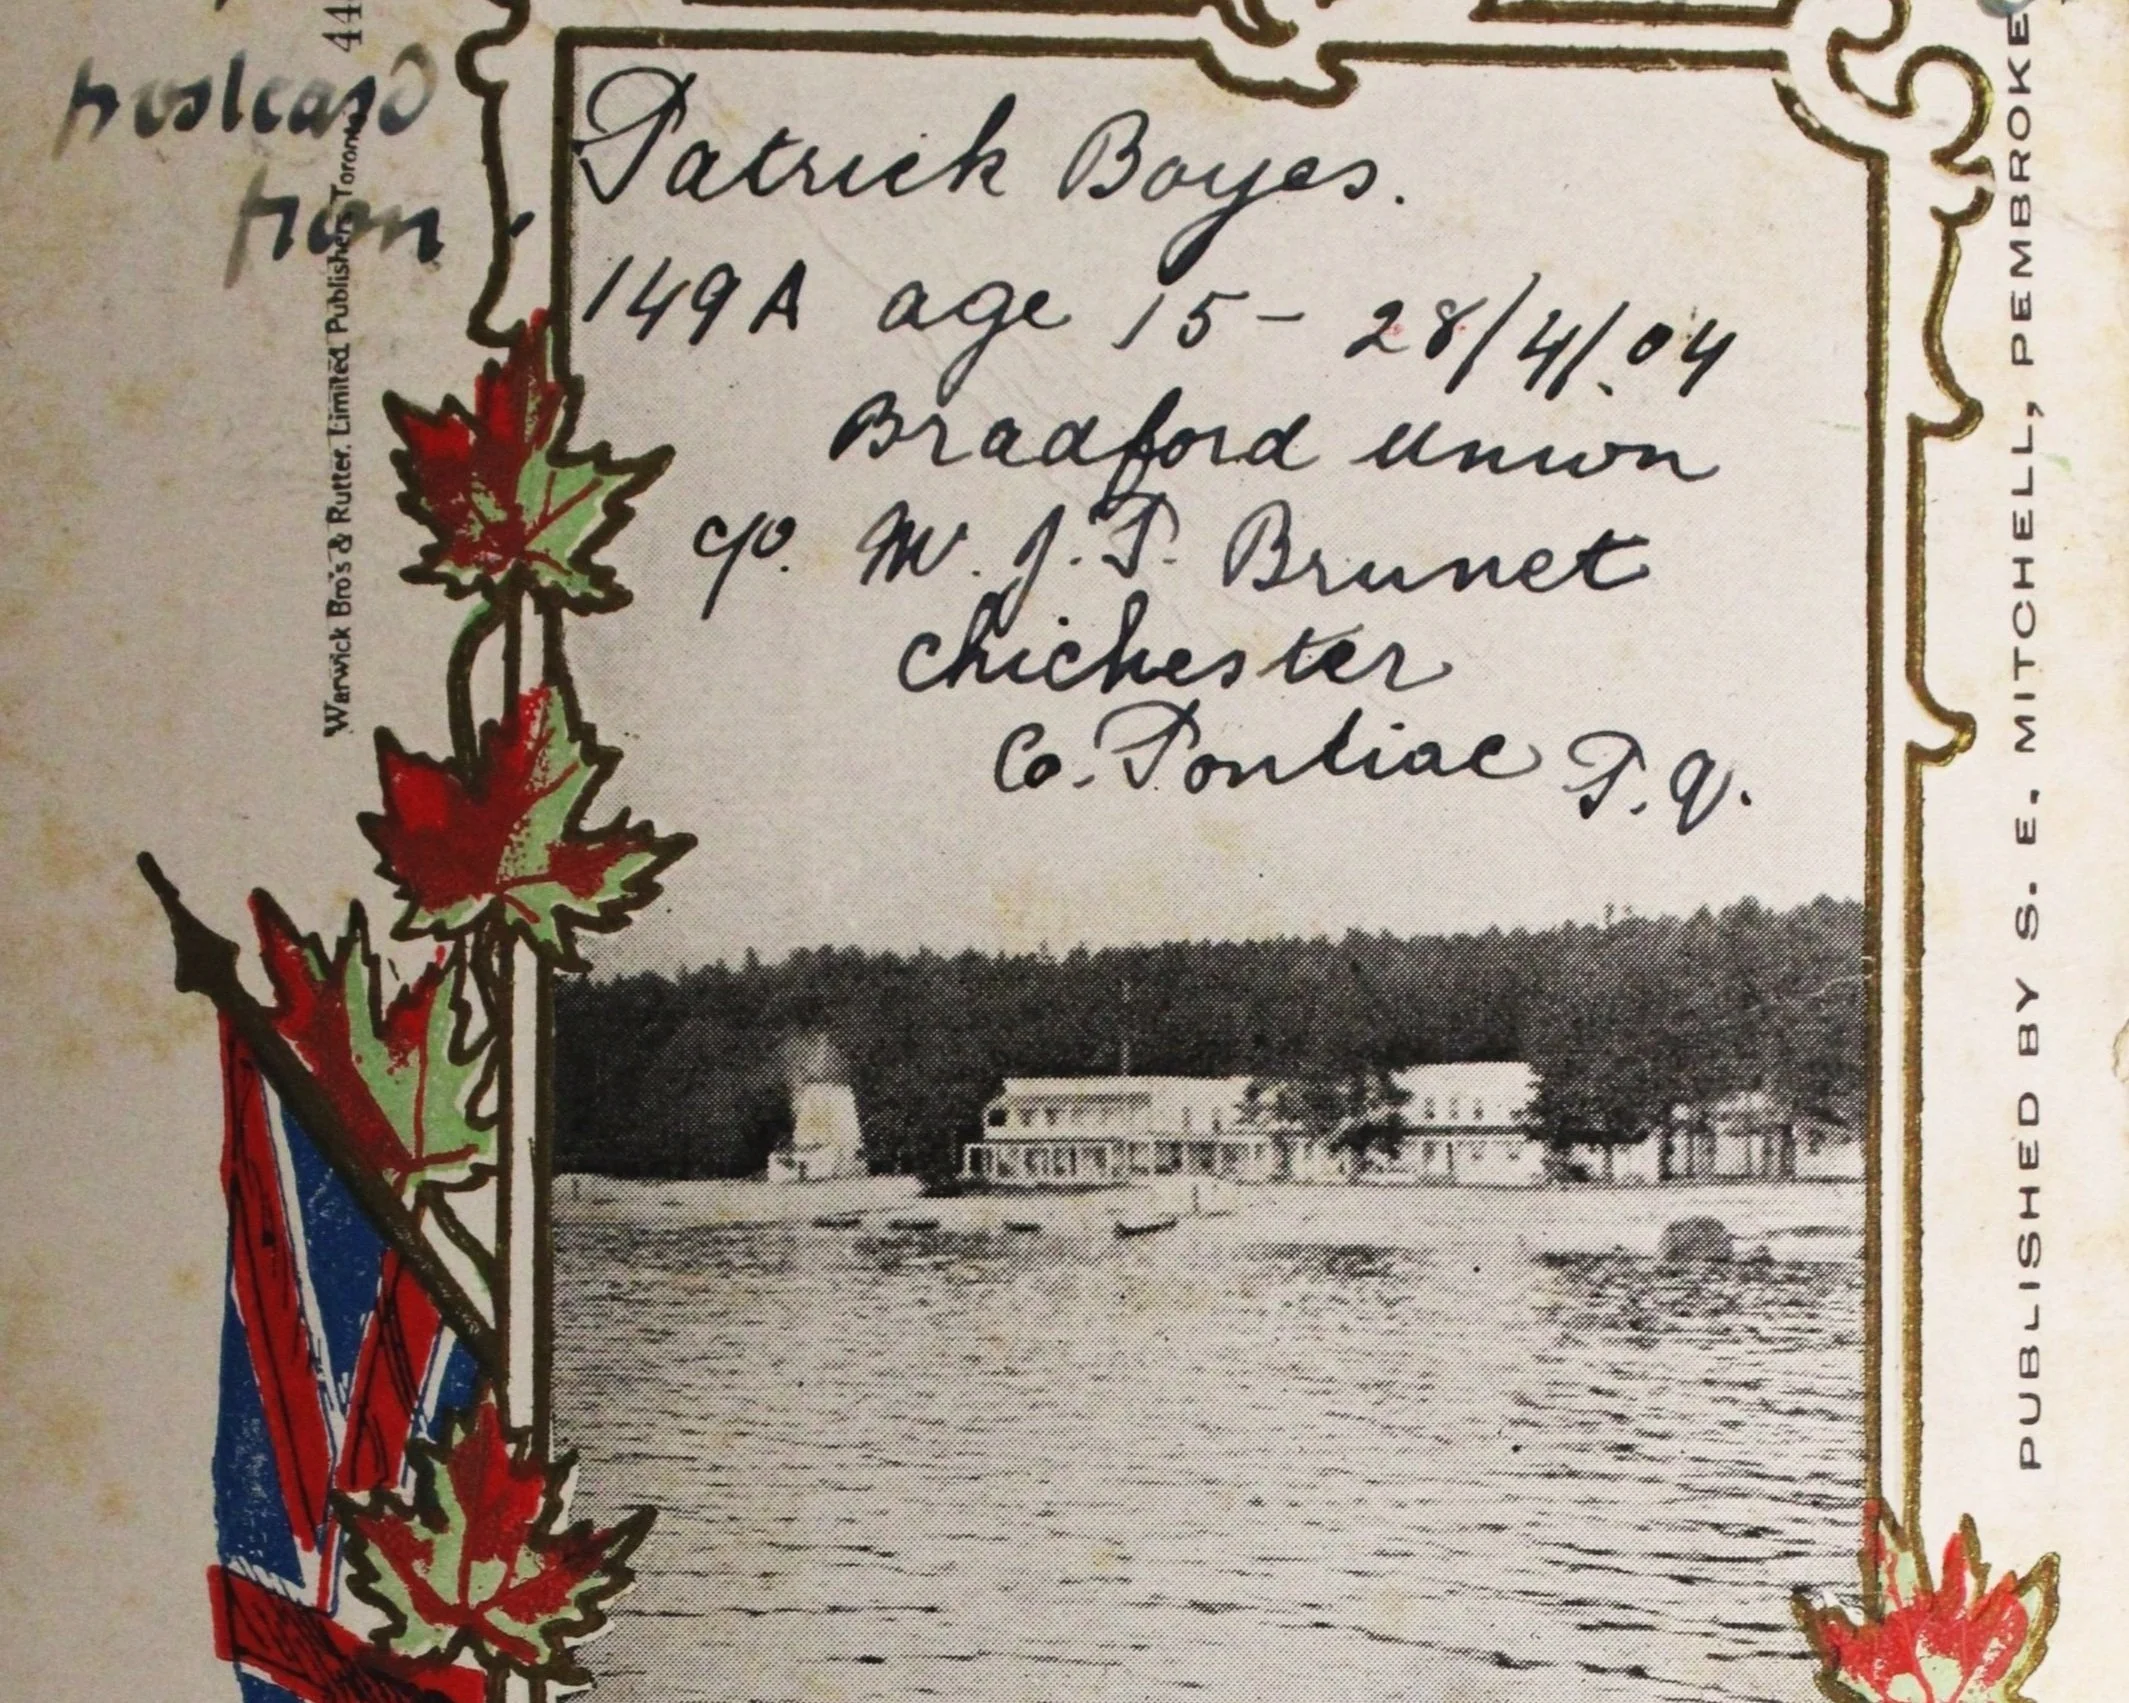 postcard
from
44
Warwick Bro's & Rutter, Limited Publishers, Toronto
Patrick Boyes.
149A age 15 - 28/4/.04
Bradford Union
c/o. M. J. P. Brunet
Chichester
Co. Pontiac P.Q.
PUBLISHED BY S. E. MITCHELL, PEMBROKE